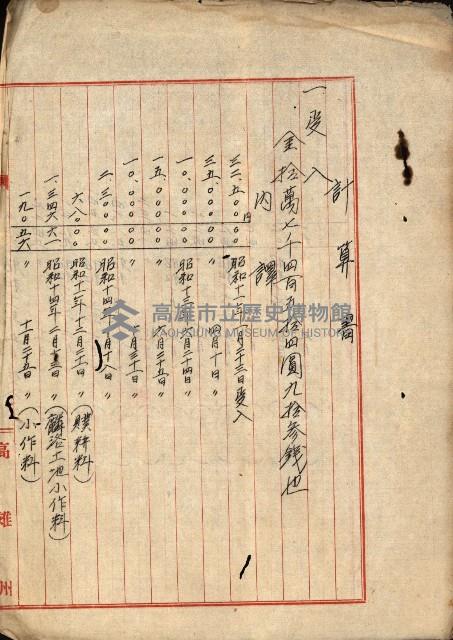 計算書
一受入
金拾萬七千四百五拾四圓九拾参銭也
內譯
三二.五〇〇〇〇円 昭和十二年 月二十三日受入
三五.〇〇〇〇〇 〃 四月十日〃
一〇.〇〇〇〇〇 昭和十三年 月二十四日〃
一五.〇〇〇〇〇 〃 八月二十五日〃
一〇.〇〇〇〇〇 〃 月三十一日〃
三.〇〇〇〇〇 昭和十四年 月十八日〃
六八〇〇〇 昭和十二年十二月二十一日〃(賃料)
一.三四六六一 昭和十四年二月十三日〃(麟洛土地小作料)
一九〇五六 〃 十二月二十五日〃(小作料)
高雄州
高雄市立歷史博物館
KAOHSIUNG MUSEUM OF HISTORY